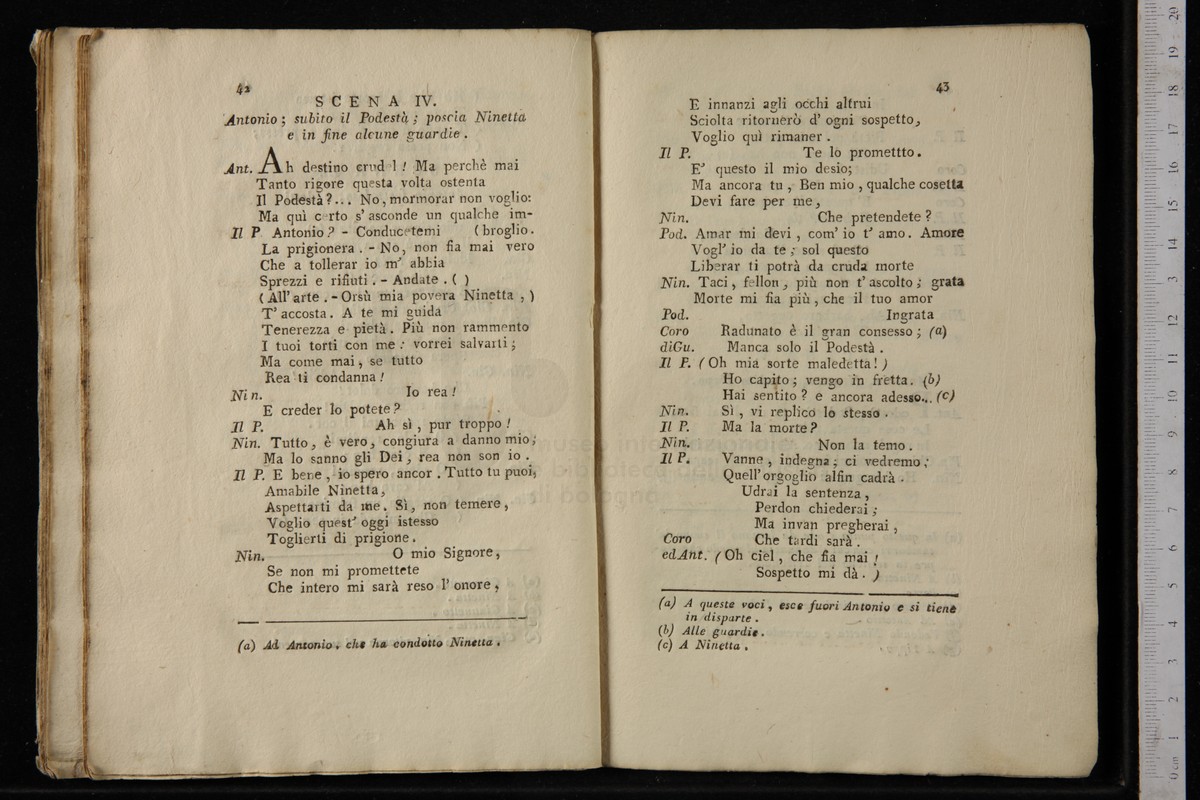 42
SCENA IV.
Antonio ; subito il Podestà ; poscia Ninetta
e in fine alcune guardie .
Ant. Ah destino crud l ! Ma perchè mai
Tanto rigore questa volta ostenta
Il Podestà ?... No, mormorar non voglio:
Ma quì certo s' asconde un qualche im-
Il P. Antonio ? - Conducetemi (broglio.
La prigionera . - No, non fia mai vero
Che a tollerar io m' abbia
Sprezzi e rifiuti . - Andate . ( )
( All' arte . - Orsù mia povera Ninetta , )
T' accosta . A te mi guida
Tenerezza e pietà . Più non rammento
I tuoi torti con me : vorrei salvarti ;
Ma come mai , se tutto
Rea ti condanna !
Nin. Io rea !
E creder lo potete ?
Il P. Ah sì , pur troppo !
Nin. Tutto , è vero , congiura a danno mio ;
Ma lo sanno gli Dei , rea non son io .
Il P. E bene , io spero ancor . Tutto tu puoi,
Amabile Ninetta ,
Aspettarti da me . Sì , non temere ,
Voglio quest' oggi istesso
Toglierti di prigione .
Nin. O mio Signore ,
Se non mi promettete
Che intero mi sarà reso l' onore ,
(a) Ad Antonio , che ha condotto Ninetta .
43
E innanzi agli occhi altrui
Sciolta ritornerò d' ogni sospetto ,
Voglio quì rimaner .
Il P. Te lo promettto .
E' questo il mio desio ;
Ma ancora tu , Ben mio , qualche cosetta
Devi fare per me ,
Nin. Che pretendete ?
Pod. Amar mi devi , com' io t' amo . Amore
Vogl' io da te ; sol questo
Liberar ti potrà da cruda morte
Nin. Taci , fellon , più non t' ascolto ; grata
Morte mi fia più , che il tuo amor
Pod. Ingrata
Coro Radunato è il gran consesso ; (a)
diGu. Manca solo il Podestà .
Il P. ( Oh mia sorte maledetta ! )
Ho capito ; vengo in fretta . (b)
Hai sentito ? e ancora adesso... (c)
Nin. Sì , vi replico lo stesso .
Il P. Ma la morte ?
Nin. Non la temo .
Il P. Vanne , indegna ; ci vedremo ;
Quell' orgoglio alfin cadrà .
Udrai la sentenza ,
Perdon chiederai ;
Ma invan pregherai ,
Coro Che tardi sarà .
edAnt. ( Oh ciel , che fia mai !
Sospetto mi dà . )
(a) A queste voci , esce fuori Antonio e si tiene
in disparte .
(b) Alle guardie .
(c) A Ninetta .